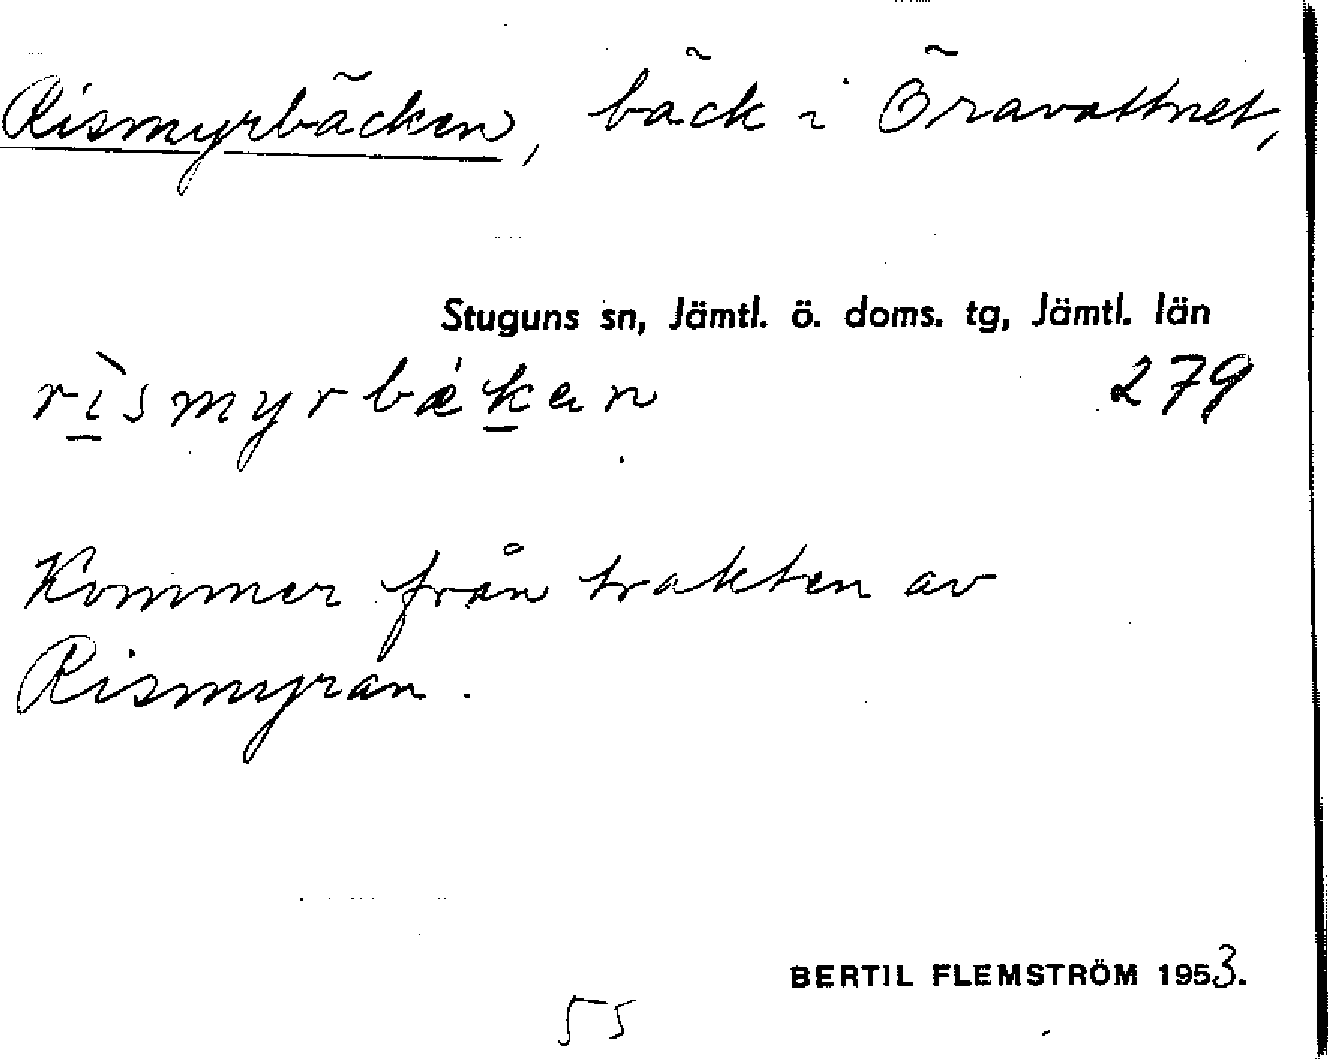 Rismyrbäcken, bäck i Öravattnet,
Stuguns sn, Jämtl. ö. doms. tg, Jämtl. län
rìsmyrbǽkan 279
Kommer från trakten av
Rismyran.
BERTIL FLEMSTRÖM 1953.
55